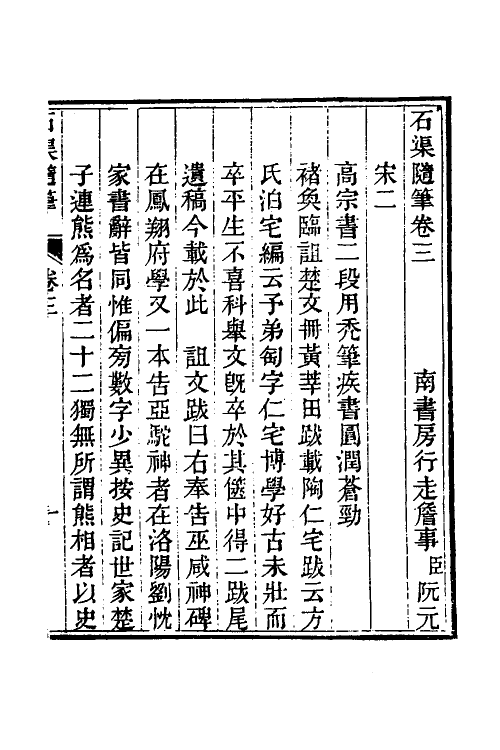 石渠隨筆卷三　南書房行走詹事臣阮元
宋二
高宗書二段用禿筆疾書圓潤蒼勁
褚奐臨詛楚文冊黃莘田跋載陶仁宅跋云方
氏泊宅編云予弟匋字仁宅博學好古未壯而
卒平生不喜科舉文旣卒於其篋中得二跋尾
遺稿今載於此　詛文跋曰右奉告巫咸神碑
在鳳翔府學又一本告亞駝神者在洛陽劉忱
家書辭皆同惟偏旁數字少異按史記世家楚
子連熊爲名者二十二獨無所謂熊相者以史
石渠隨筆　卷三　一